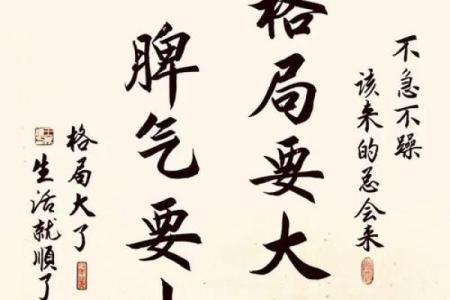 不急不躁
该来的总会来
格局要大
脾气要
格局大了
生活就順了